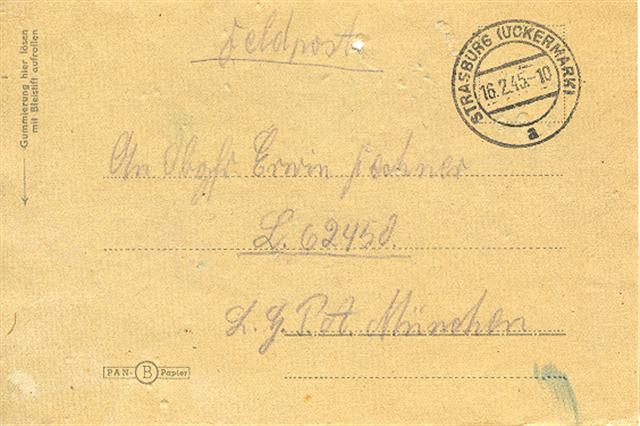 Feldpost
STRASBURG (UCKERMARK)
16.2.45.-10
a
Gummierung hier lösen
mit Bleistift aufrollen
An Obgfr Erwin
L. 62450.
L. G. P. A. München
PAN- B Papier